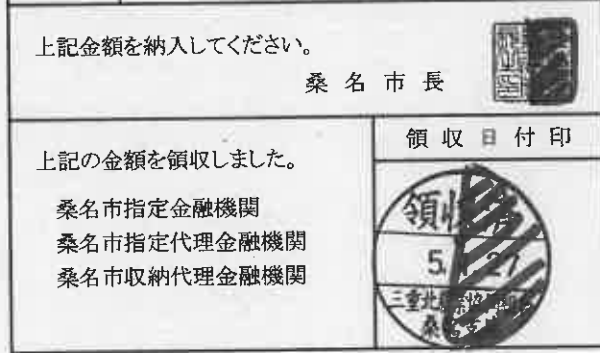 上記金額を納入してください。
桑名市長
領収日付印
上記の金額を領収しました。
桑名市指定金融機関
桑名市指定代理金融機関
桑名市収納代理金融機関
領収
5. 27
三重北
桑名